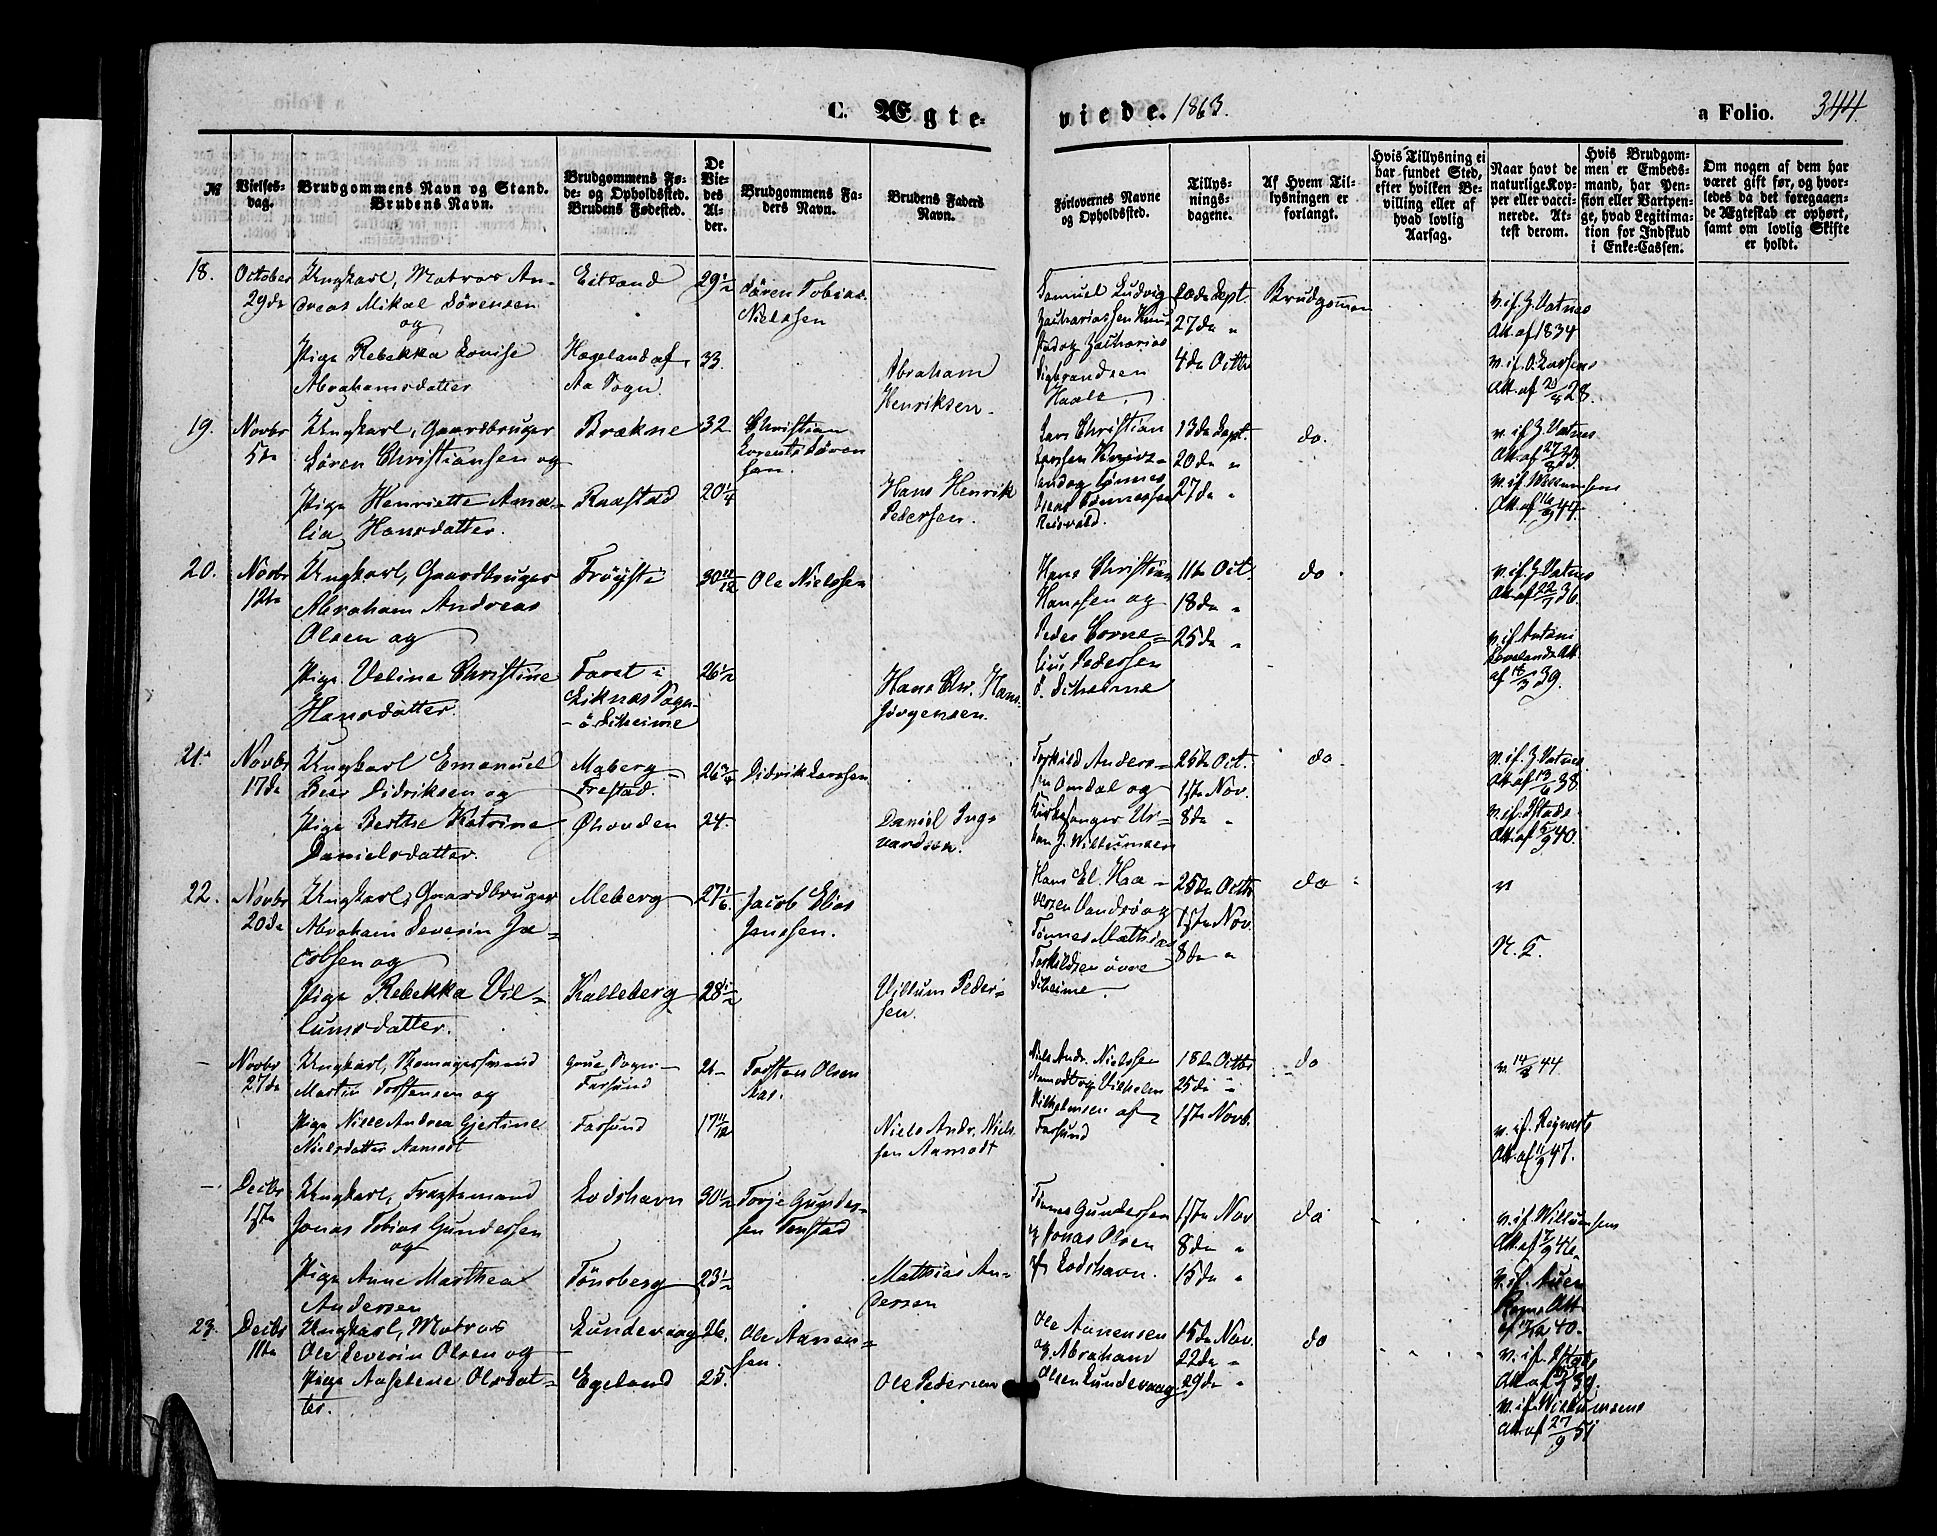 C. Ægte-
viede. 1863.
a Folio. 344.
No
Vielses-
dag.
Brudgommens Navn og Stand.
Brudens Navn.
Brudgommens Fø-
de- og Opholdssted.
Brudens Fødested.
De
Vie-
des
Al-
der.
Brudgommens Fa-
ders Navn.
Brudens Faders
Navn.
Forlovernes Navne
og Opholdssted.
Tillys-
nings-
dagene.
Af Hvem Til-
lysningen er
forlangt.
Hvis Tillysning ei
har fundet Sted,
efter hvilken Be-
villing eller af
hvad lovlig
Aarsag.
Naar havt de
naturlige Kop-
per eller vacci-
nerede. At-
test derom.
Hvis Brudgom-
men er Embeds-
mand, har Pen-
sion eller Vartpen-
ge, hvad Legitima-
tion for Indskud
i Enke-Cassen.
Om nogen af dem har
været gift før, og hvor-
ledes da det foregaaen-
de Ægteskab er ophørt,
samt om lovlig Skifte
er holdt.
18.
October
29de
Ungkarl, Matros An-
dreas Mikal Sørensen
og
Pige Rebekka Lovise
Abrahamsdatter
Eitland
Hægeland af
Aa Sogn.
29 1/2
33.
Søren Tobias
Nielssen
Abraham
Henriksen.
Samuel Ludvig
Zachariassen
og Zacharias
Sigbrandsen
20de Sept.
27de "
4de Octbr
Brudgomen
v. if. Z. Vatnes
Att. af 1834
v. if. O. Larsens
Att. af 28.
19.
Novbr
5te
Ungkarl, Gaardbruger
Søren Christiansen og
Pige Henriette Ama-
lia Hansdatter.
Brækne
Raastad
32
20 1/4
Christian
Lorents Søren
sen.
Hans Henrik
Pedersen.
Lars Christian
Larssen
og Tønnes
Tønnessen
13de Sept.
20de "
27de "
do.
v. if. Z. Vatnes
Att. af 27/8 33
v. if. Willumsens
Att. af 16/9 44.
20.
Novbr
12te
Ungkarl, Gaardbruger
Abraham Andreas
Olsen og
Pige Veline Christine
Hansdatter.
Frøysti
Faret i
Liknes Sogn
30 11/12
26 1/2
Ole Nielssen
Hans Chr. Hans
Jørgensen.
Hans Christian
Hanssen og
Peder Corne-
lius Pedersen
11te Oct.
18de "
25de "
do
v. if. Z. Vatnes
Att. af 22/7 36.
v. if. Antoni
Att.
af 14/3 39.
21.
Novbr
17de
Ungkarl Emanuel
Beer Didriksen og
Pige Berthe Katrine
Danielsdatter.
Meberg
Frestad.
Øhouden
26 3/4
24.
Didrik Larssen
Daniel Ing-
vardsen.
Torkild Anders-
sen Omdal og
Kirkesanger Ur-
ban J. Willumsen
25de Oct.
1ste Nov.
8de "
do
v. if. Z. Vatnes
Att. af 13/6 38
v. if. Stads
Att. af 5/9 40.
22.
Novbr
20de
Ungkarl, Gaardbruger
Abraham Severin Ja-
cobsen og
Pige Rebekka Vil-
lumsdatter.
Meberg
Kalleberg
27 1/6.
28 1/2
Jacob Elias
Janssen.
Villum Peder-
sen.
Hans El. Haa-
versen Vandsø og
Tønnes Mathias
Torkildsen øvre
25de Octbr
1ste Nov.
8de "
do
v
N. T.
Novbr
27de
Ungkarl, Skomagersvend
Martin Torstensen og
Pige Nille Andrea Gjertine
Nielsdatter Aamodt
Sogn
Farsund
Farsund
26
17 11/12
Torsten Olsen
Aas.
Niels Andr. Niels
sen Aamodt
Niels Andr. Nielssen
Aamodt og Vilhelm
Vilhelmsen af
Farsund
18de Octbr
25de "
1ste Novb.
do
v. 14/8 44
v. if. Reinerts
Att. af 11/9 47.
Decbr
1ste
Ungkarl, Fragtemand
Jonas Tobias Gundersen
og
Pige Anne Marthea
Andersen
Lodshavn
Tönsberg
30 1/2
23 1/2
Torje Gunder-
sen Tonstad
Mathias An-
dersen
Tønnes Gundersen
og Jonas Olsen
af Lodshavn.
1ste Nov
8de "
15de "
do
v. if. Willumsens
Att. af 7/9 46.
v. if.
Att
40.
23.
Decbr
11te
Ungkarl, Matros
Ole Severin Olsen og
Pige Aaselene Olsdat-
ter.
Lundevaag
Egeland
26.
25.
Ole Aanen-
sen.
Ole Pedersen
Ole Aanensen
og Abraham
Olsen Lundevaag
15de Nov.
22de "
29de "
do
v. if. Stads
Att. af 39.
v. if. Willumsens
Att. af 27/9 51